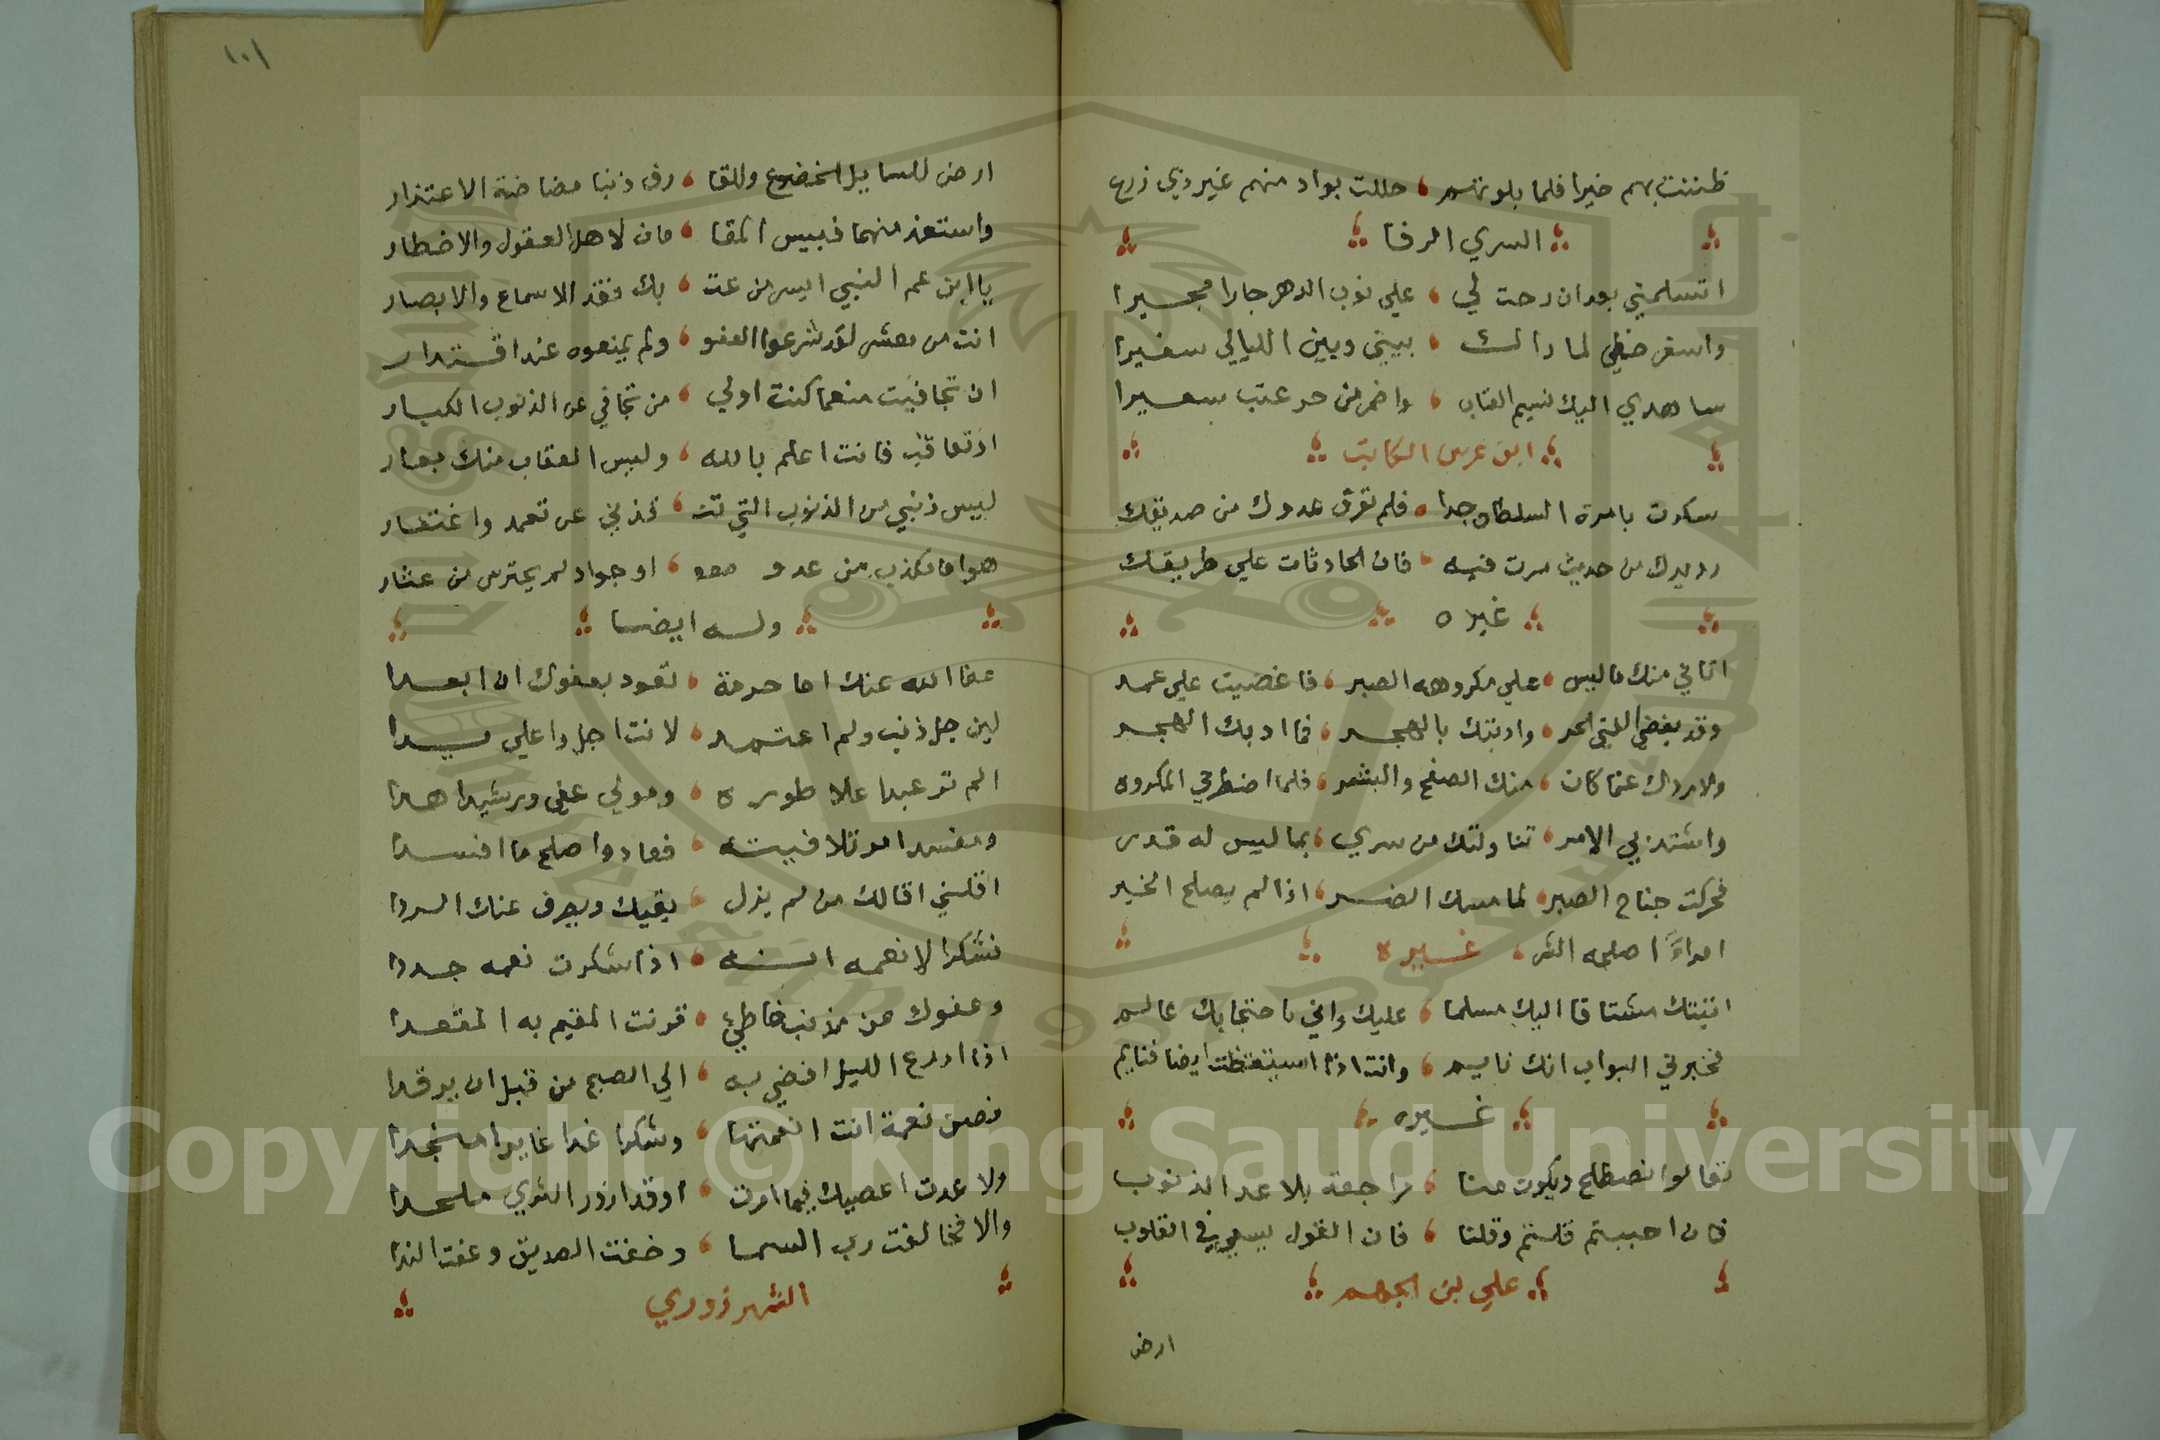 ظننت بهم خيرا فلما بلوتهم حللت بواد منهم غير ذي زرع
السري الرفا
اتسلمني بعد ان رحت لي علي نوب الدهر جارا مجيرا
واسفر حظي لما راك بيني وبين الليالي سفيرا
ساهدي اليك نسيم العتاب واضمر من حر عتب سعيرا
ابن عرس الكاتب
سكرت بامرة السلطان جدا فلم تعرف عدوك من صديقك
رويدك من حديث سرت فيه فان الحادثات علي طريقك
غيره
اتاني منك ما ليس علي مكروهه الصبر فاغضيت علي عمد
وقد يغضي الفتي الحر وادبتك بالهجر فما ادبك الهجر
ولا ردك عما كان منك الصفح والبشر فلما اضطرني المكروه
واشتد بي الامر تناولتك من سري بما ليس له قدر
فحركت جناح الصبر لما مسك الضر اذا لم يصلح الخير
امراءً اصلحه الشر غيره
اتيتك مشتاقا اليك مسلما عليك واني باحتجابك عالم
فخبرني البواب انك نايم وانت اذا استيقظت ايضا فنايم
غيره
تعالوا نصطلح ويكون منا مراجعة بلا عد الذنوب
فان احببتم قلتم وقلنا فان القول يسعي في القلوب
علي بن الجهم
ارض
١٠١
ارض للسايل الخضوع وللقا رف ذنبا مضاضة الاعتذار
واستعذ منهما فبيس المقا مان لاهل العقول والاخطار
يا ابن عم النبي اليس من عت بك فقد الاسماع والابصار
انت من معشر لقد شرعوا العفو ولم يمنعوه عند اقتدار
ان تجافيت منعما كنت اولي من تجافي عن الذنوب الكبار
او تعاقب فانت اعلم بالله وليس العقاب منك بعار
ليس ذنبي من الذنوب التي تت عن تعمد واغتفار
من عدو او جواد لم يحترس من عثار
وله ايضا
عفا الله عنك اما حرمة تعود بعفوك ان ابعدا
لين جل ذنب ولم اعتمد لانت اجل واعلي يدا
الم تر عبدا علا طوره ومولي عفي ورشيدا هدا
ومفسد امر تلافيته فعاد واصلح ما افسدا
اقلني اقالك من لم يزل يقيك ويصرف عنك الردا
نشكرا لانعمه انه اذا شكرت نعمه جددا
وعفوك عن مذنب خاطئ قرنت المقيم به المقعدا
اذا ادرع الليل افضي به الي الصبح من قبل ان يرقدا
فصن نعمة انت انعمتها وشكرا غدا غايرا منجدا
ولا عدت اعصيك فيما امرت او قدازور الثري ملحدا
والا فخالفت رب السما وخفت الصديق وعفت الندا
الشهرزوري
Copyright © King Saud University